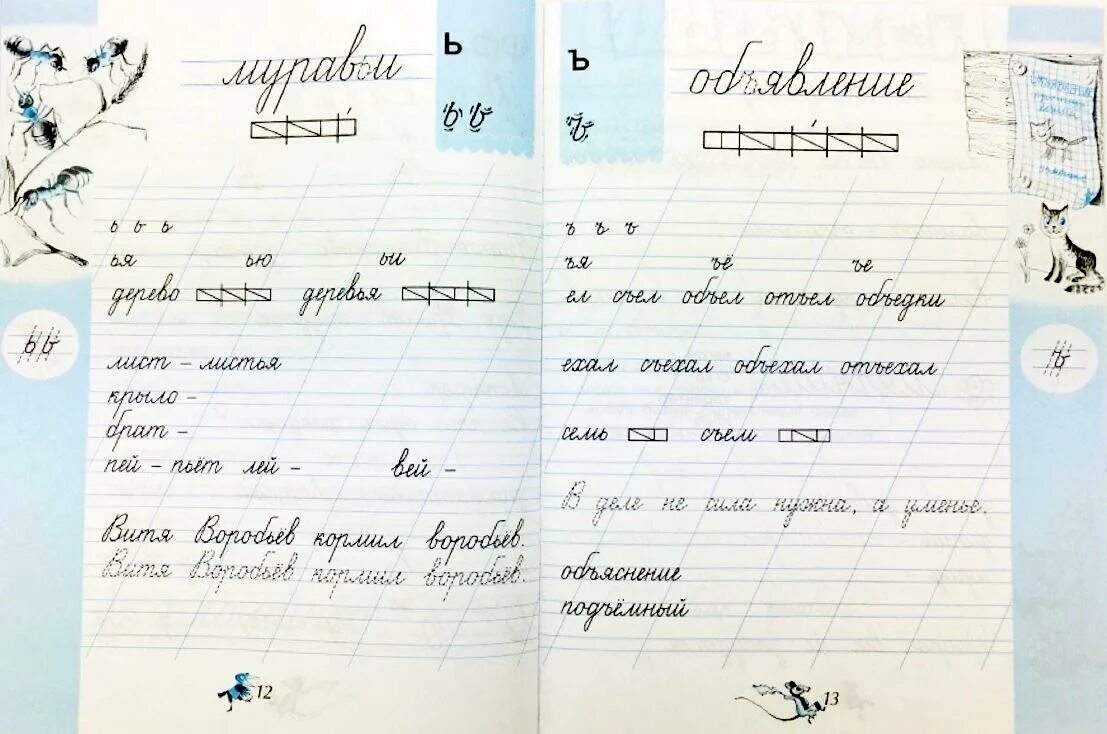 муравьи
ь
ь ь
ь ь ь
ья ью ьи
дерево деревья
ь ь
лист – листья
крыло –
брат –
пей – пьёт лей – вей –
Витя Воробьёв кормил воробьёв.
Витя Воробьёв кормил воробьёв.
12
ъ
объявление
ъ
ъ ъ ъ
ъя ъё ъе
ел съел объел отъел объедки
ъ
ехал съехал объехал отъехал
семь съем
В деле не сила нужна, а уменье.
объяснение
подъёмный
13